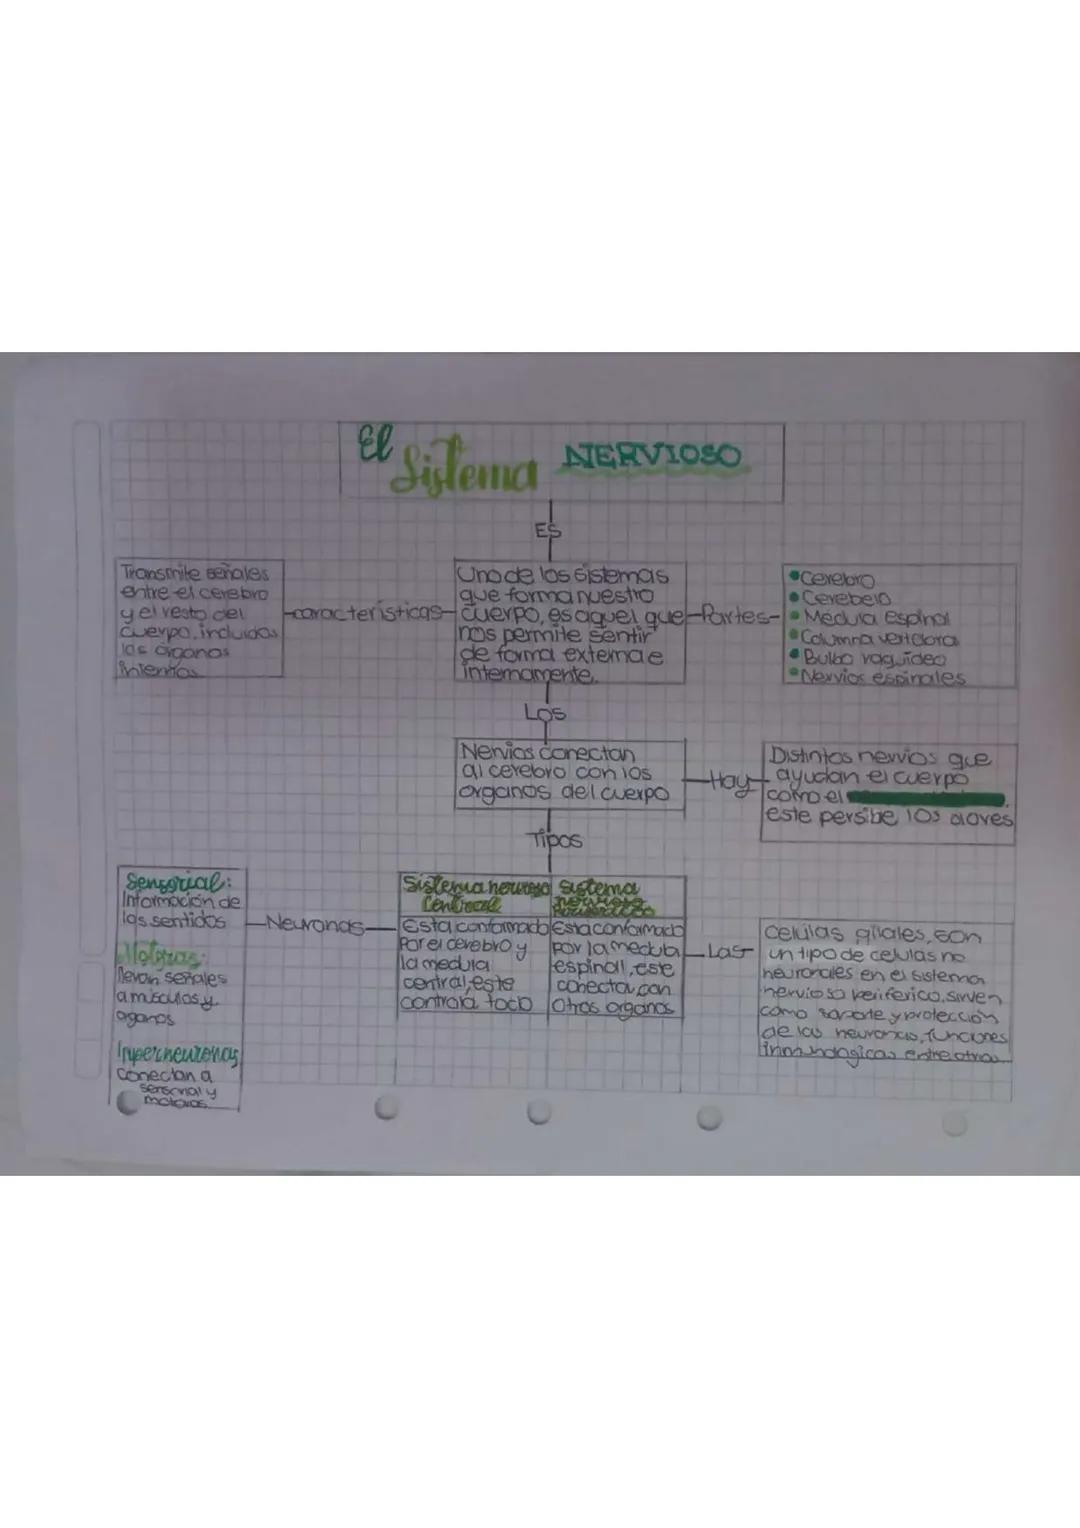 El Sistema NERVIOSO
ES
Transmite señales
entre el cerebro
y el resto del
cuerpo, incluidos
los órganos
internos
características
Uno de los sistemas
que forma nuestro
cuerpo, es aquel que
nos permite sentir
de forma externa e
internamente.
Partes
Cerebro
Cerebelo
Medula Espinal
Columna vertebral
Bulbo raquideo
Nervios espinales
Los
Nervios conectan
al cerebro con los
organos del cuerpo
Hay
Distintos nervios que
ayudan el cuerpo
como el
este persibe los olores
Tipos
Sensorial:
Información de
los sentidos
Motoras:
llevan señales
a músculos y
oganos
Inperneuronas
conectan a
sensorial y
motoras
Neuronas
Sistema nervioso
Central
Esta conformado
Por el cerebro y
la medula
central, este
controla todo
Sistema
nervioso
Periferico
Esta conformado
por la medula
espinal, este
conecta con
otros organos
Las
Celulas gliales, son
un tipo de celulas no
neuronales en el sistema
nervioso periferico, sirven
como soporte y protección
de las neuronas, funciones
inmunologicas entre otras